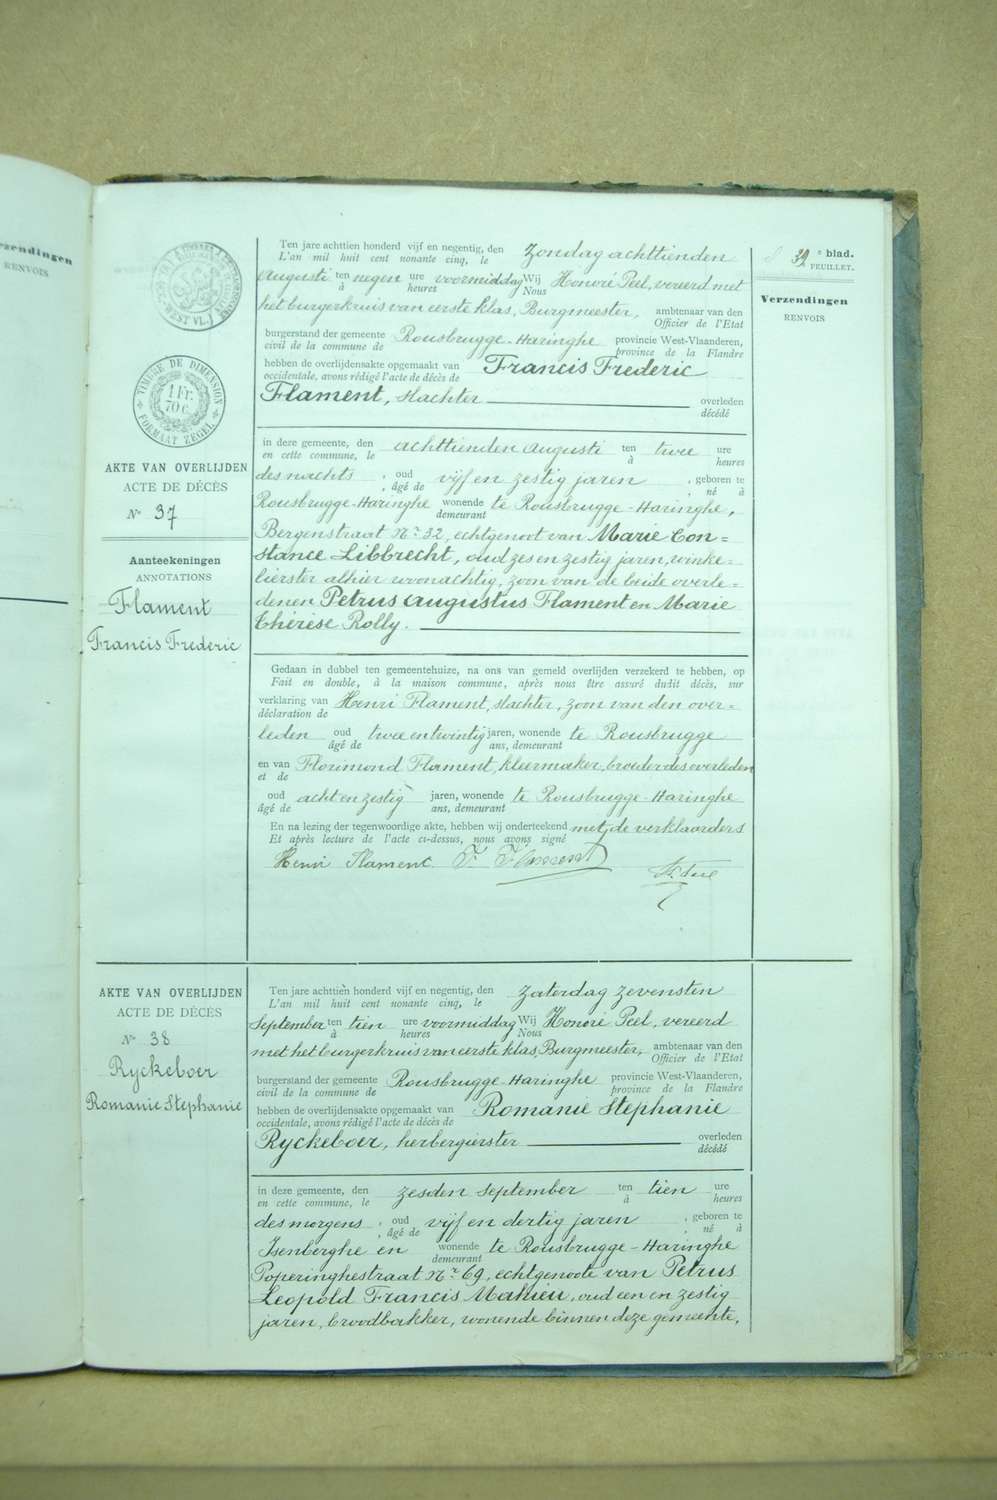 rzendingen
RENVOIS
39 e blad.
FEUILLET.
Verzendingen
RENVOIS
TIMBRE DE DIMENSION
1 Fr.
70 c.
FORMAAT ZEGEL
AKTE VAN OVERLIJDEN
ACTE DE DÉCÈS
No 37
Aanteekeningen
ANNOTATIONS
Flament
Francis Frederic
Ten jare achttien honderd vijf en negentig, den Zondag achttienden
L'an mil huit cent nonante cinq, le
Augusti ten negen ure voormiddag Wij Honoré Peel, vereerd met
à heures Nous
het burgerkruis van eerste klas, Burgmeester, ambtenaar van den
Officier de l'Etat
burgerstand der gemeente Rousbrugge-Haringhe provincie West-Vlaanderen,
civil de la commune de province de la Flandre
hebben de overlijdensakte opgemaakt van Francis Frederic
occidentale, avons rédigé l'acte de décès de
Flament, slachter overleden
décédé
in deze gemeente, den achttienden Augusti ten twee ure
en cette commune, le à heures
des nachts , oud vijf en zestig jaren , geboren te
, âgé de , né à
Rousbrugge-Haringhe wonende te Rousbrugge-Haringhe,
demeurant
Bergenstraat Nr 32, echtgenoot van Marie Con=
stance Libbrecht, oud zes en zestig jaren, winke=
lierster alhier woonachtig, zoon van de beide overle=
denen Petrus Augustus Flament en Marie
Thérèse Rolly.
Gedaan in dubbel ten gemeentehuize, na ons van gemeld overlijden verzekerd te hebben, op
Fait en double, à la maison commune, après nous être assuré dudit décès, sur
verklaring van Henri Flament, slachter, zoon van den over=
déclaration de
leden oud twee en twintig jaren, wonende te Rousbrugge
âgé de ans, demeurant
en van Florimond Flament, kleermaker, broeder des overleden
et de
oud acht en zestig jaren, wonende te Rousbrugge-Haringhe
âgé de ans, demeurant
En na lezing der tegenwoordige akte, hebben wij onderteekend met de verklaarders
Et après lecture de l'acte ci-dessus, nous avons signé
Henri Flament F. Flament
AKTE VAN OVERLIJDEN
ACTE DE DÉCÈS
No 38
Ryckeboer
Romanie Stephanie
Ten jare achttien honderd vijf en negentig, den Zaterdag zevensten
L'an mil huit cent nonante cinq, le
September ten tien ure voormiddag Wij Honoré Peel, vereerd
à heures Nous
met het burgerkruis van eerste klas, Burgmeester, ambtenaar van den
Officier de l'Etat
burgerstand der gemeente Rousbrugge-Haringhe provincie West-Vlaanderen,
civil de la commune de province de la Flandre
hebben de overlijdensakte opgemaakt van Romanie Stephanie
occidentale, avons rédigé l'acte de décès de
Ryckeboer, herbergierster overleden
décédé
in deze gemeente, den zesden September ten tien ure
en cette commune, le à heures
des morgens , oud vijf en dertig jaren , geboren te
, âgé de , né à
Isenberghe en wonende te Rousbrugge-Haringhe
demeurant
Poperinghestraat Nr 69, echtgenoote van Petrus
Leopold Francis Mahieu, oud een en zestig
jaren, broodbakker, wonende binnen deze gemeente,